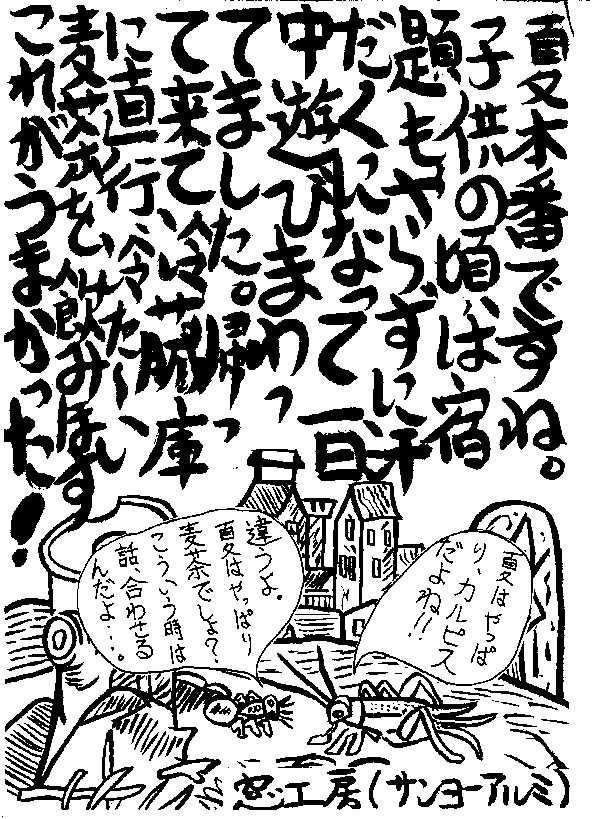 夏本番ですね。
子供の頃は宿
題もやらずに汗
だくになって一日
中遊びまわっ
てました。帰っ
て来て、冷蔵庫
に直行、冷たーい、
麦茶を、飲みほす
これがうまかった！
夏はやっぱ
り、カルピス
だよね！！
違うよ。
夏はやっぱり
麦茶でしょ？
こういう時は
話、合わせる
んだよ・・・。
窓工房(サンヨーアルミ)